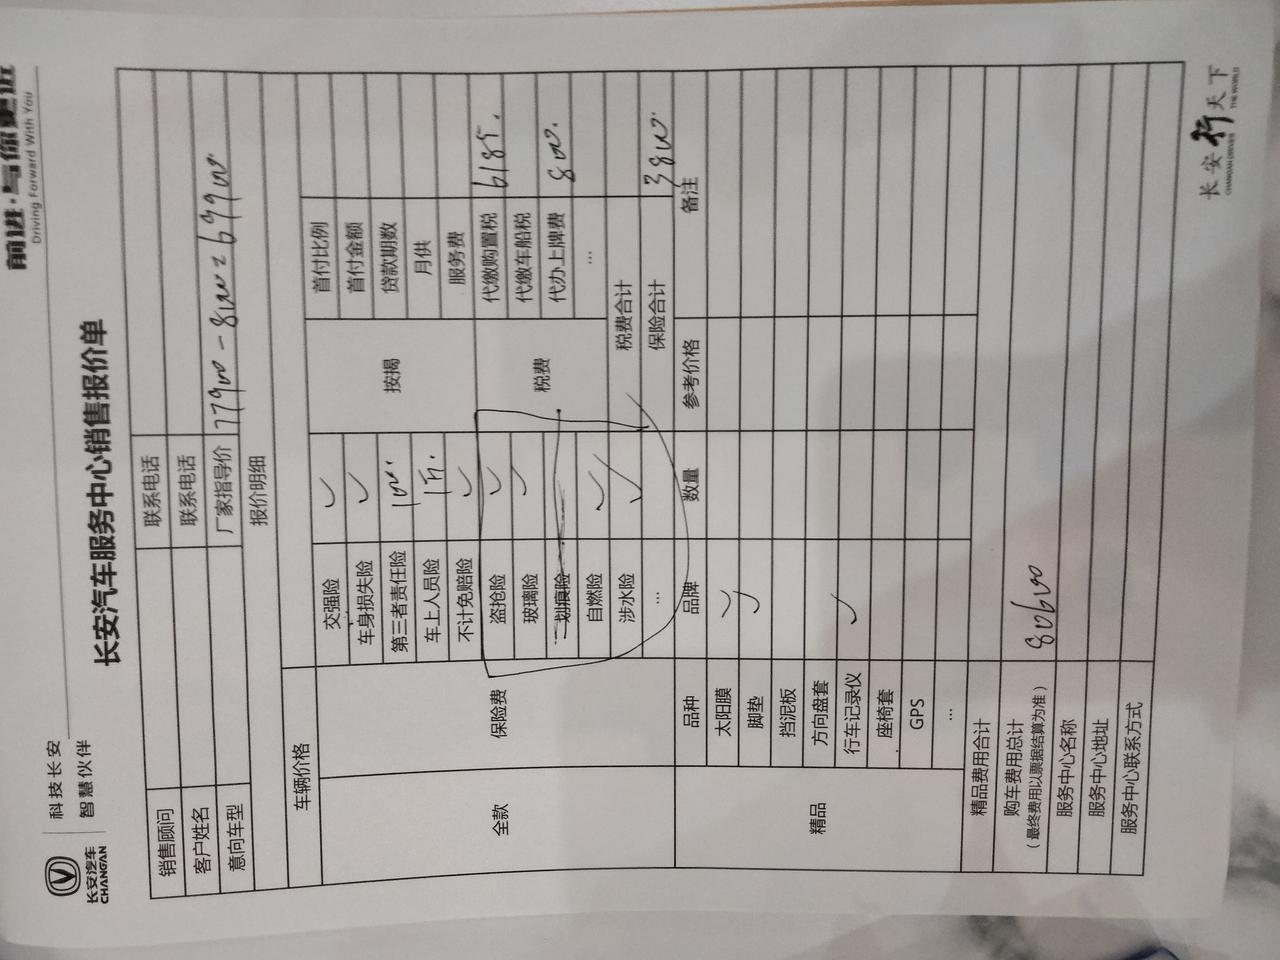 长安汽车
CHANGAN
科技长安
智慧伙伴
前进·与你更近
Driving Forward With You
长安汽车服务中心销售报价单
销售顾问 联系电话
客户姓名 联系电话
意向车型 厂家指导价 77900-8000=69900.
报价明细
车辆价格
全款 保险费 交强险 ✓ 按揭 首付比例
车身损失险 ✓ 首付金额
第三者责任险 贷款期数
车上人员险 1万. 月供
不计免赔险 ✓ 服务费
盗抢险 ✓ 税费 代缴购置税 6185.
玻璃险 ✓ 代缴车船税
划痕险 代办上牌费 800.
自燃险 ✓ ...
涉水险 ✓ 税费合计
... 保险合计 3800.
精品 品种 品牌 数量 参考价格 备注
太阳膜 ✓
脚垫 ✓
挡泥板
方向盘套
行车记录仪 ✓
座椅套
GPS
...
精品费用合计
购车费用总计
(最终费用以票据结算为准) 80600
服务中心名称
服务中心地址
服务中心联系方式
长安行天下
CHANGAN DRIVES THE WORLD